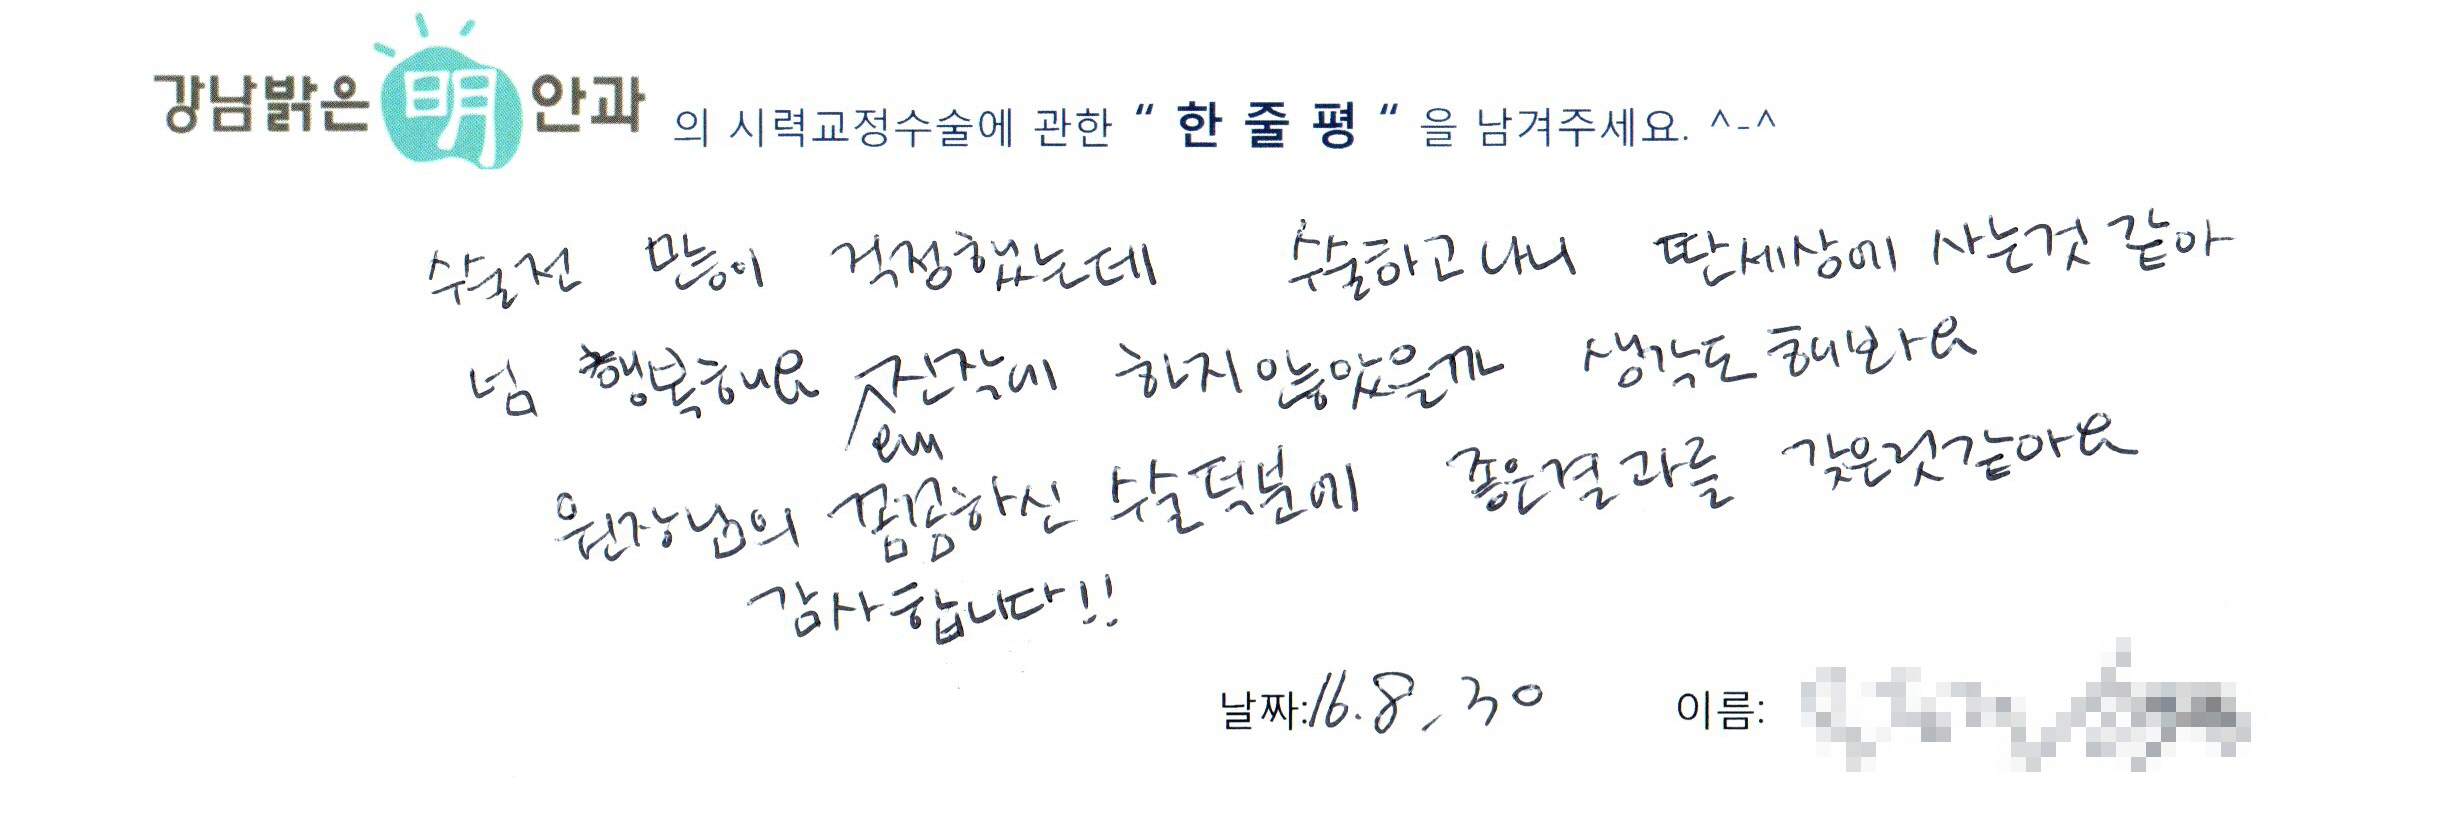 강남밝은 明 안과 의 시력교정수술에 관한 “ 한 줄 평 “ 을 남겨주세요. ^-^
수술전 많이 걱정했는데 수술하고나니 딴세상에 사는것 같아
넘 행복해요 왜 진작에 하지않았을까 생각도해봐요
원장님의 꼼꼼하신 수술덕분에 좋은결과를 갖은것같아요
감사합니다!!
날짜:16.8.30 이름: